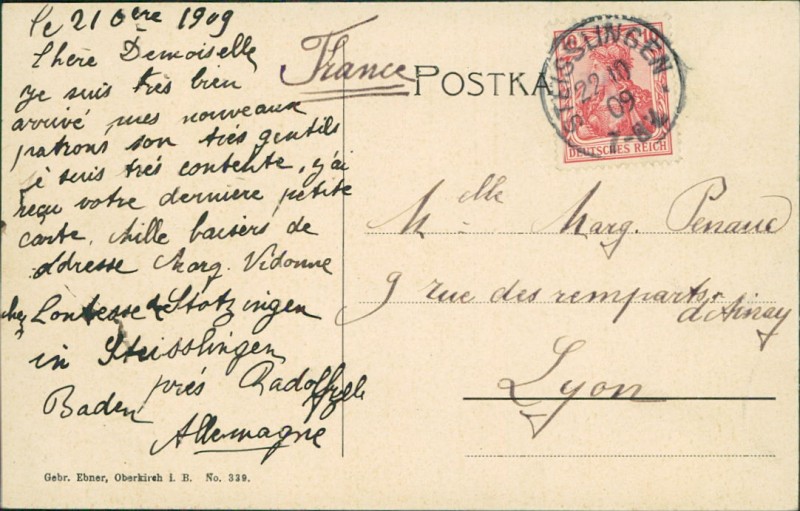 le 21 8bre 1909
Chère Demoiselle
je suis très bien
arrivé mes nouveaux
patrons son très gentils
je suis très contente, j'ai
reçu votre dernière petite
carte. Mille baisers de
adresse Marg. Vidonne
chez Contesse de Stotzingen
in Steisslingen
près Radolfzell
Baden
Allemagne
Gebr. Ebner, Oberkirch i. B. No. 339.
France
POSTKA
STEISSLINGEN
22 10 09
7-8
DEUTSCHES REICH
Mlle Marg. Penaud
9 rue des remparts
d'Ainay
Lyon